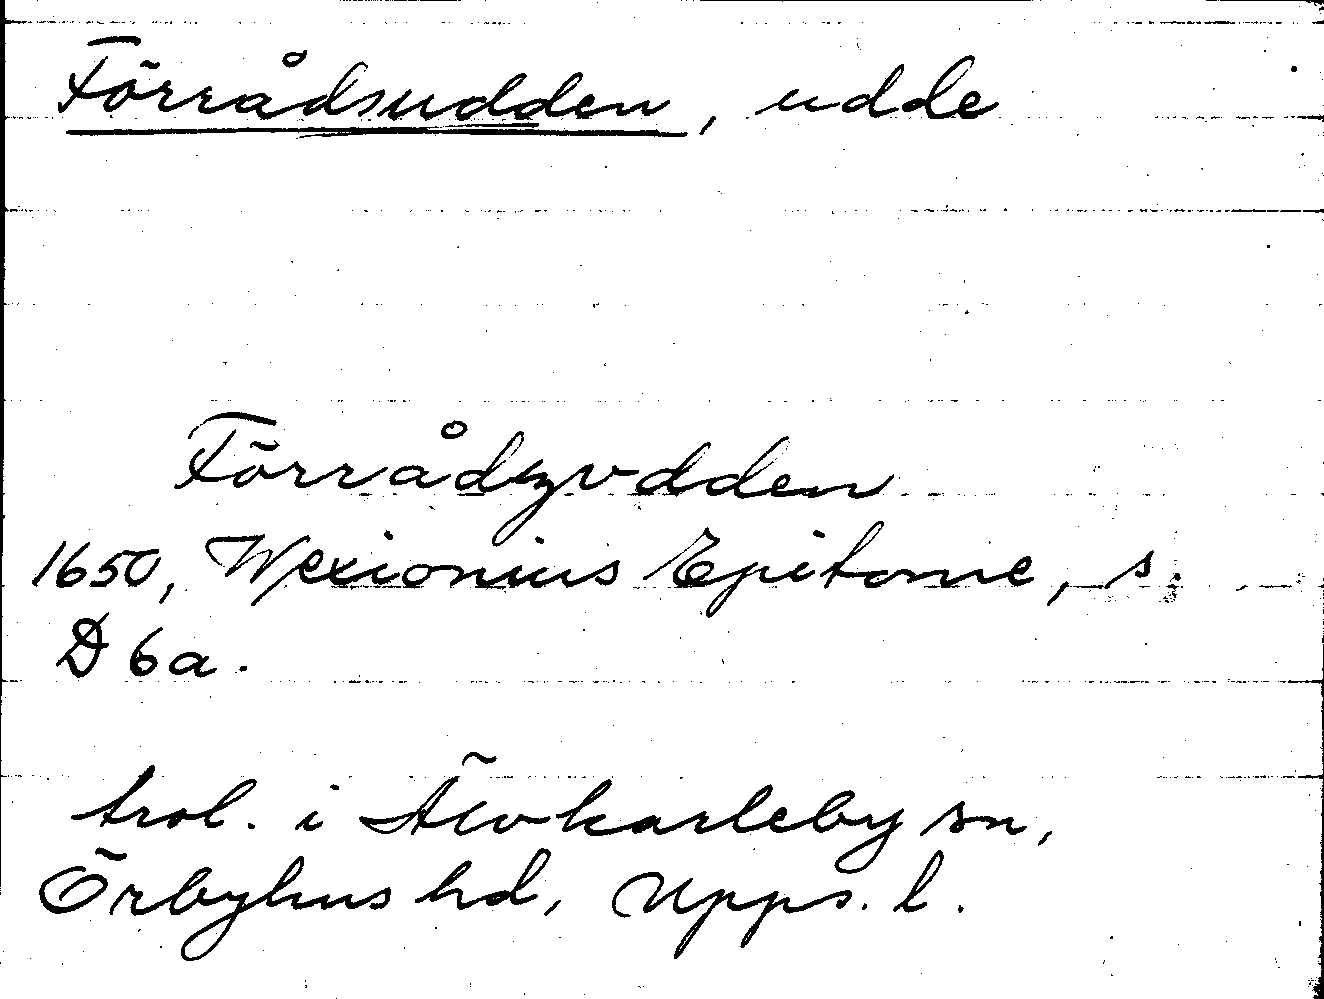 Förrådsudden, udde
Förrådzvdden
1650, Wexionius Epitome, s.
D 6a.
trol. i Älvkarleby sn,
Örbyhus hd, Upps. l.